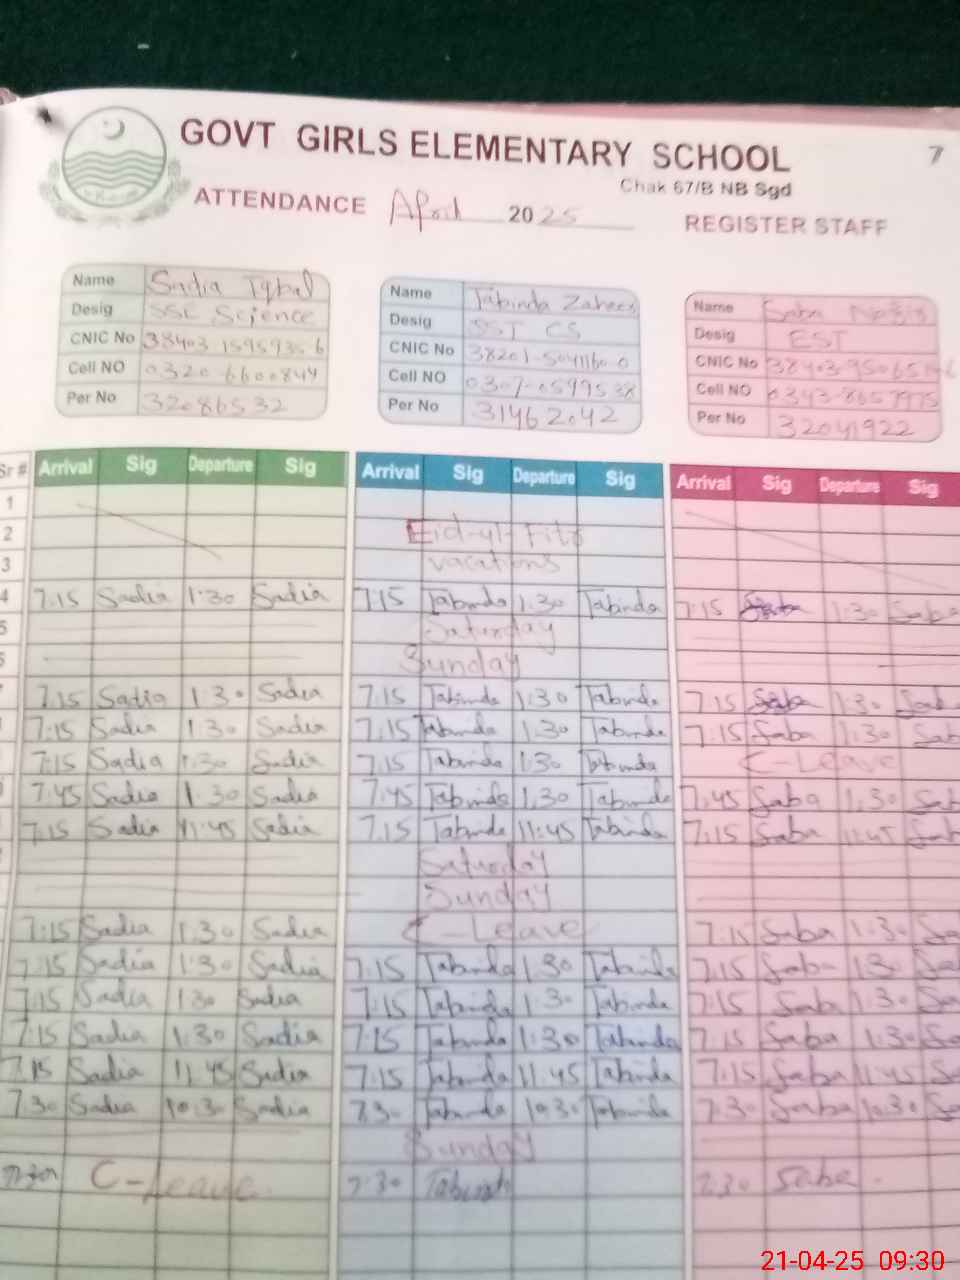 GOVT GIRLS ELEMENTARY SCHOOL 7
Chak 67/B NB Sgd
ATTENDANCE April 2025 REGISTER STAFF
Name Sadia Iqbal Name Tabinda Zaheer Name Saba
Desig SSE Science Desig SST CS Desig EST
CNIC No CNIC No CNIC No
Cell NO 0320-6600844 Cell NO Cell NO
Per No 32086532 Per No 31462042 Per No 32041922
Sr # Arrival Sig Departure Sig Arrival Sig Departure Sig Arrival Sig Departure Sig
1
2 Eid-ul-Fitr
3 vacations
4 7:15 Sadia 1:30 Sadia 7:15 Tabinda 1:30 Tabinda 7:15 Saba 1:30 Saba
5 Saturday
Sunday
7:15 Sadia 1:30 Sadia 7:15 Tabinda 1:30 Tabinda 7:15 Saba 1:30
7:15 Sadia 1:30 Sadia 7:15 Tabinda 1:30 Tabinda 7:15 Saba 1:30
7:15 Sadia 1:30 Sadia 7:15 Tabinda 1:30 Tabinda C-Leave
7:45 Sadia 1:30 Sadia 7:45 Tabinda 1:30 Tabinda 7:45 Saba 1:30
7:15 Sadia 11:45 Sadia 7:15 Tabinda 11:45 Tabinda 7:15 Saba 11:45
Saturday
Sunday
7:15 Sadia 1:30 Sadia C-Leave 7:15 Saba 1:30
7:15 Sadia 1:30 Sadia 7:15 Tabinda 1:30 Tabinda 7:15 Saba 1:30
7:15 Sadia 1:30 Sadia 7:15 Tabinda 1:30 Tabinda 7:15 Saba 1:30
7:15 Sadia 1:30 Sadia 7:15 Tabinda 1:30 Tabinda 7:15 Saba 1:30
7:15 Sadia 11:45 Sadia 7:15 Tabinda 11:45 Tabinda 7:15 Saba 11:45
7:30 Sadia 10:30 Sadia 7:30 Tabinda 10:30 Tabinda 7:30 Saba 10:30
Sunday
7:30 C-Leave 7:30 Tabinda 7:30 Saba
21-04-25 09:30